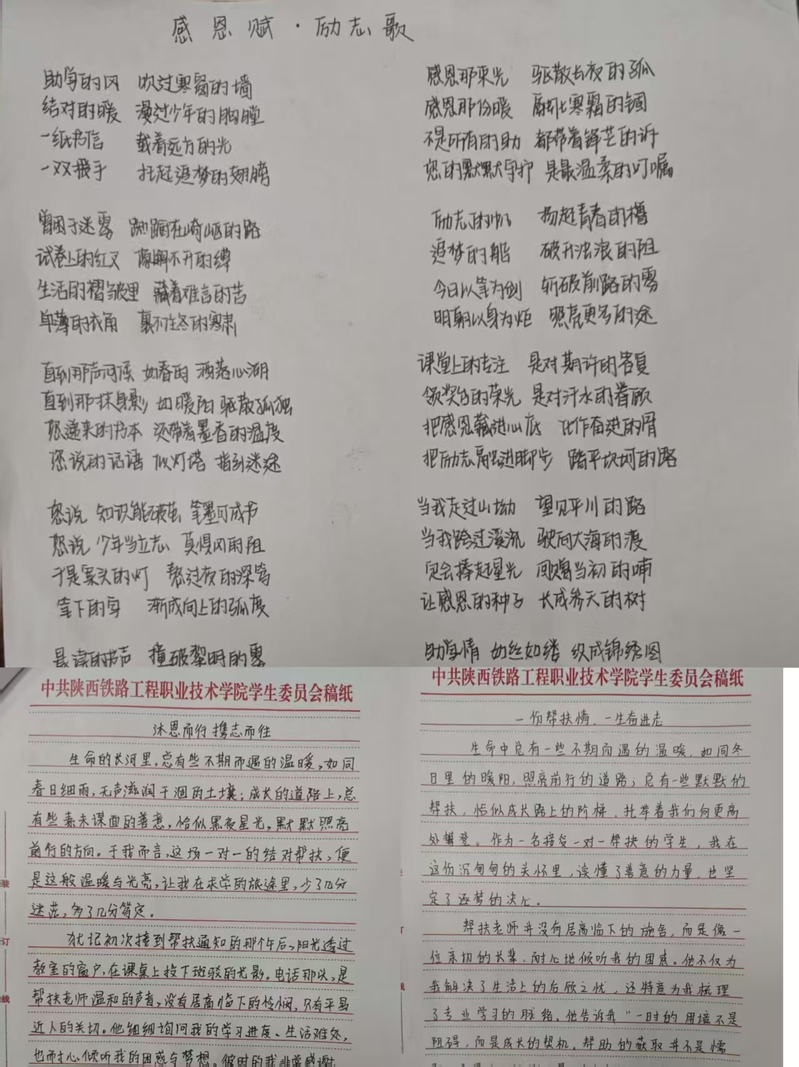 感恩赋·励志歌
助学的风 吹过寒窗的墙
结对的暖 漫过少年的胸膛
一纸书信 载着远方的光
一双援手 托起追梦的翅膀
曾困于迷雾 踟蹰在崎岖的路
试卷上的红叉 解不开的缚
生活的褶皱里 藏着难言的苦
单薄的衣角 裹不住冬的寒肃
直到那声问候 如春雨 洒落心湖
直到那抹身影 如暖阳 驱散孤独
您递来的书本 还带着墨香的温度
您说的话语 似灯塔 指引迷途
您说 知识能破茧 笔墨可成书
您说 少年当立志 莫惧风雨阻
于是案头的灯 熬过夜的深笃
笔下的字 渐成向上的弧度
晨读的书声 撞破黎明的雾
感恩那束光 驱散长夜的孤
感恩那份暖 融化寒霜的锢
不是所有的助 都带着锋芒的诉
您的默默守护 是最温柔的叮嘱
励志的帆 扬起青春的橹
追梦的船 破开浊浪的阻
今日以笔为剑 斩破前路的雾
明朝以身为炬 照亮更多的途
课堂上的专注 是对期许的答复
领奖台的荣光 是对汗水的眷顾
把感恩藏进心底 化作奋进的骨
把励志融进脚步 踏平坎坷的路
当我走过山坳 望见平川的路
当我跨过溪流 驶向大海的渡
定会捧起星光 回赠当初的哺
让感恩的种子 长成参天的树
助学情 如丝如缕 织成锦绣图
中共陕西铁路工程职业技术学院学生委员会稿纸
沐恩而行 携志而往
生命的长河里,总有些不期而遇的温暖,如同
春日细雨,无声滋润干涸的土壤;成长的道路上,总
有些素未谋面的善意,恰似黑夜星光,默默照亮
前行的方向。于我而言,这场一对一的结对帮扶,便
是这般温暖与光亮,让我在求学的旅途里,少了几分
迷茫,多了几分笃定。
犹记初次接到帮扶通知的那个午后,阳光透过
教室的窗户,在课桌上投下斑驳的光影。电话那头,是
帮扶老师温和的声音,没有居高临下的怜悯,只有平易
近人的关切。他细细询问我的学习进度、生活难处,
也耐心倾听我的困惑与梦想。彼时的我
装
订
线
中共陕西铁路工程职业技术学院学生委员会稿纸
一份帮扶情,一生奋进志
生命中总有一些不期而遇的温暖,如同冬
日里的暖阳,照亮前行的道路;总有一些默默的
帮扶,恰似成长路上的阶梯,托举着我们向更高
处攀登。作为一名接受一对一帮扶的学生,我在
这份沉甸甸的关怀里,读懂了善意的力量,也坚
定了逐梦的决心。
帮扶老师并没有居高临下的施舍,而是像一
位亲切的长辈,耐心地倾听我的困惑。他不仅为
我解决了生活上的后顾之忧,还特意为我梳理
了专业学习的脉络。他告诉我“一时的困境不是
阻碍,而是成长的契机,帮助的获取并不是懦
订
线